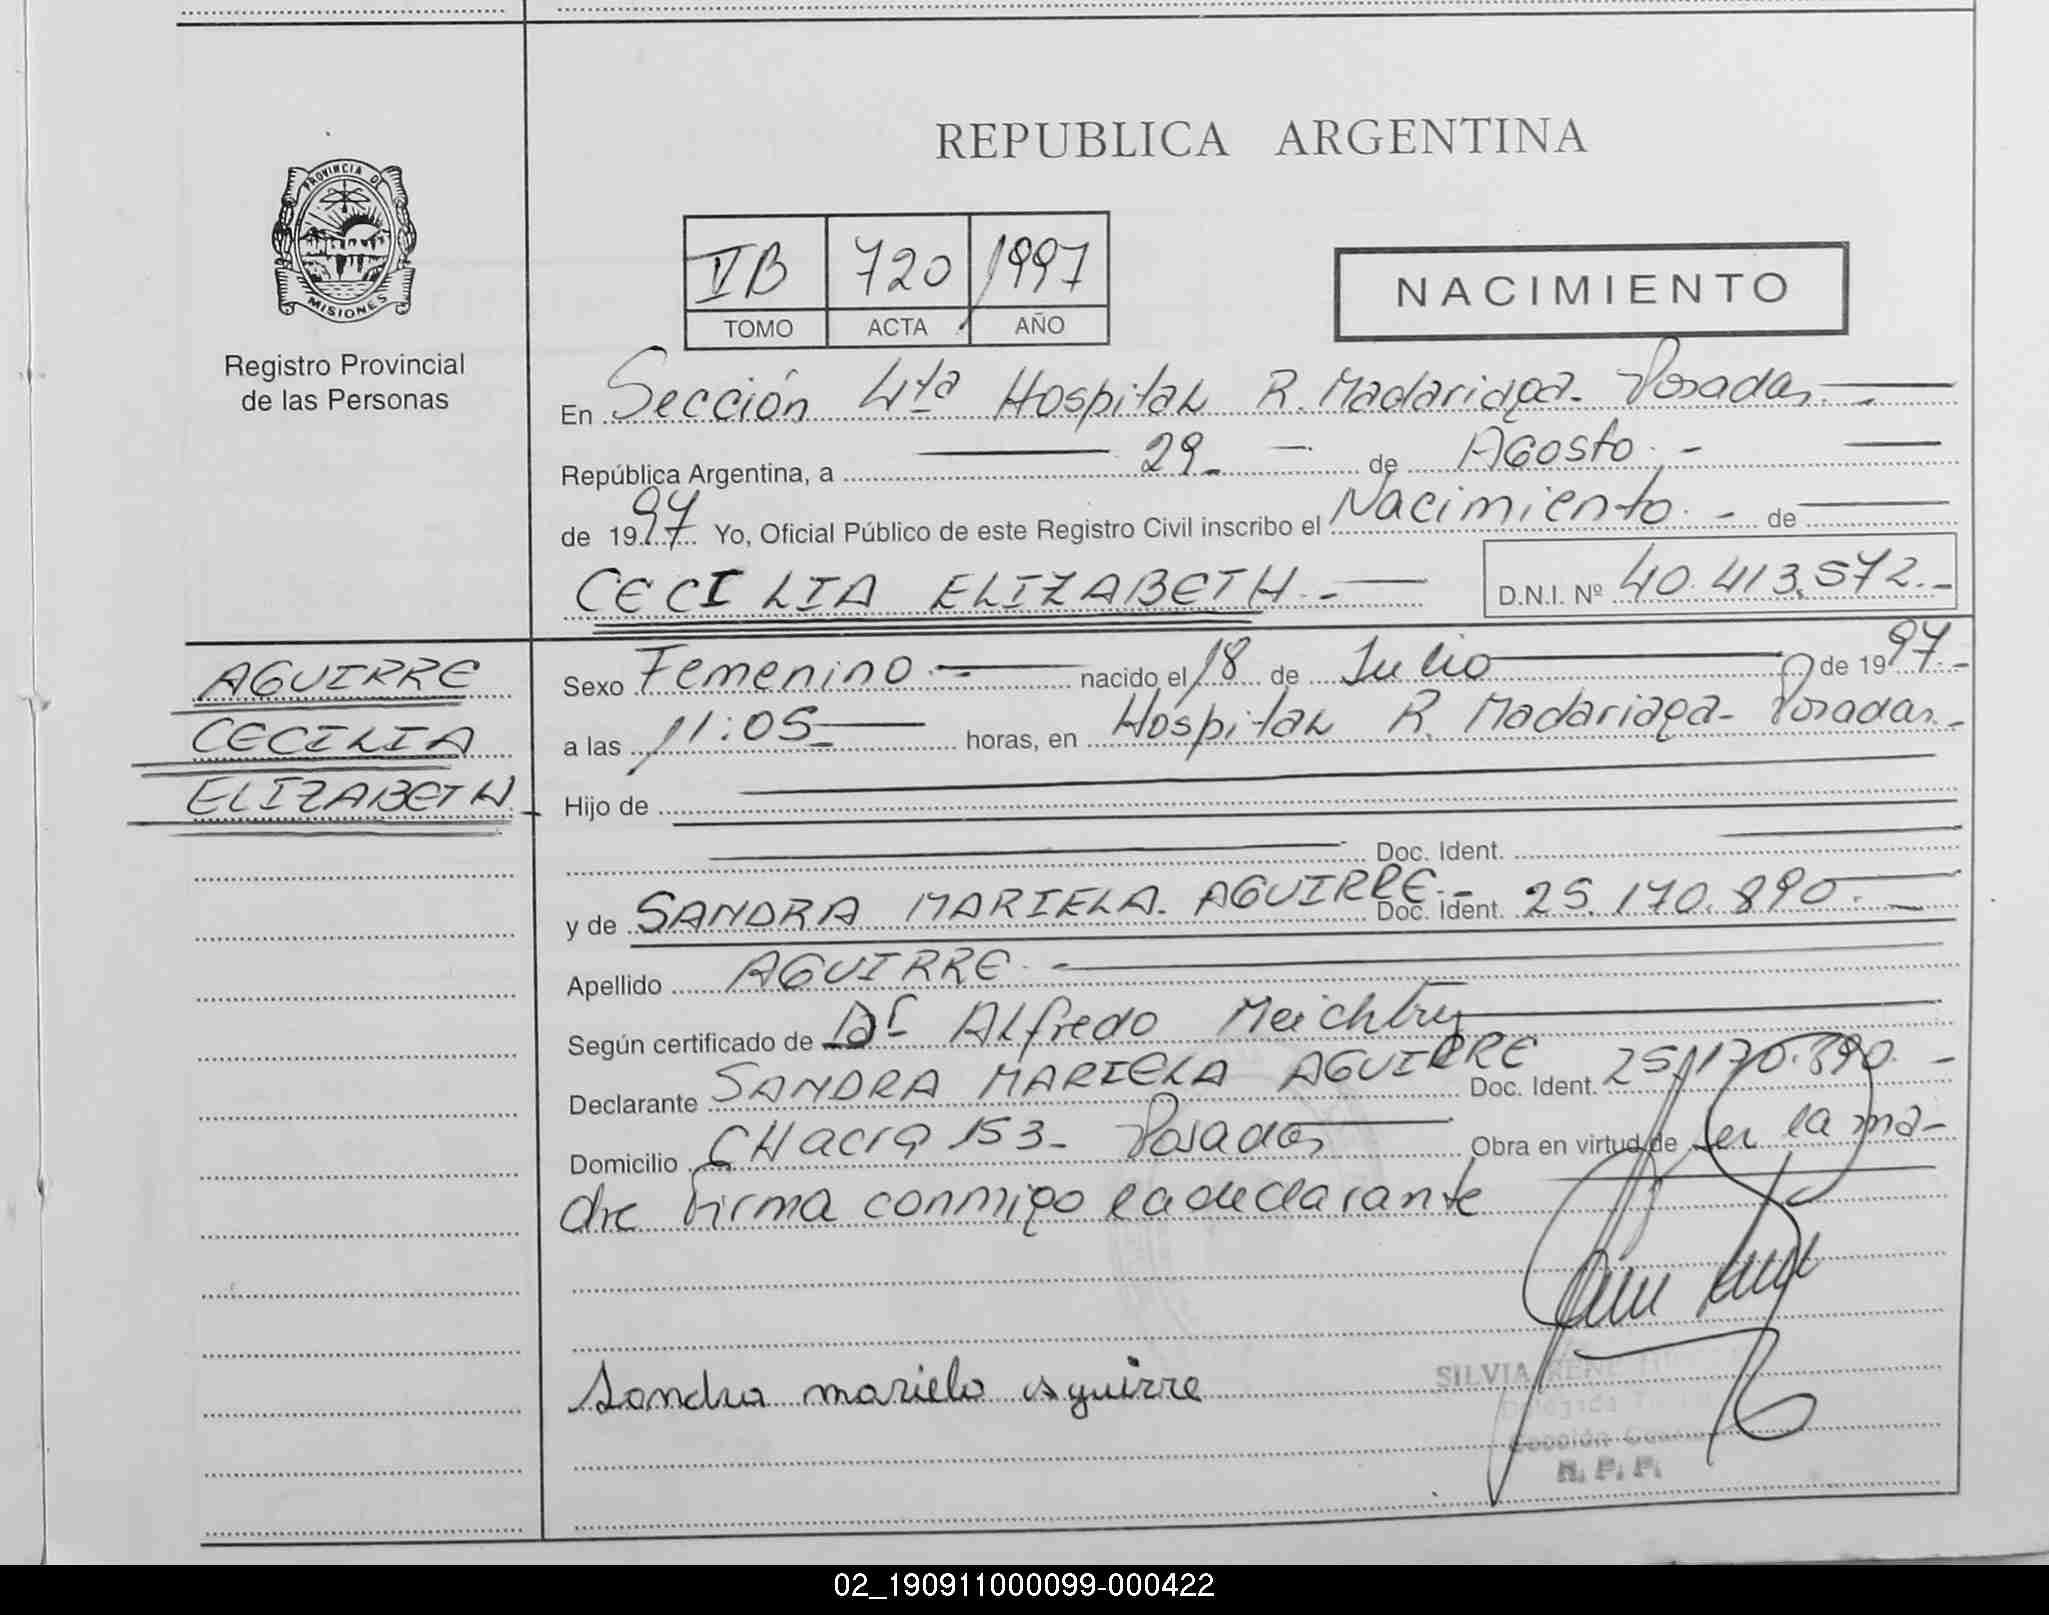 REPUBLICA ARGENTINA
PROVINCIA DE
MISIONES
Registro Provincial
de las Personas
IVB 720 1997
TOMO ACTA AÑO
NACIMIENTO
En Sección 4ta Hospital R. Madariaga - Posadas
República Argentina, a 29 de Agosto
de 1997 Yo, Oficial Público de este Registro Civil inscribo el Nacimiento de
CECILIA ELIZABETH D.N.I. Nº 40.413.572
AGUIRRE
CECILIA
ELIZABETH
Sexo Femenino nacido el 18 de Julio de 1997
a las 11:05 horas, en Hospital R. Madariaga - Posadas
Hijo de
Doc. Ident.
y de SANDRA MARIELA AGUIRRE Doc. Ident. 25.170.890
Apellido AGUIRRE
Según certificado de Dr Alfredo Meichtry
Declarante SANDRA MARIELA AGUIRRE Doc. Ident. 25.170.890
Domicilio CHacra 153 - Posadas Obra en virtud de ser la ma-
dre firma conmigo la declarante
Sandra mariela aguirre
SILVIA IRENE
Delegada
Sección Cuarta
R. P. P.
02_190911000099-000422